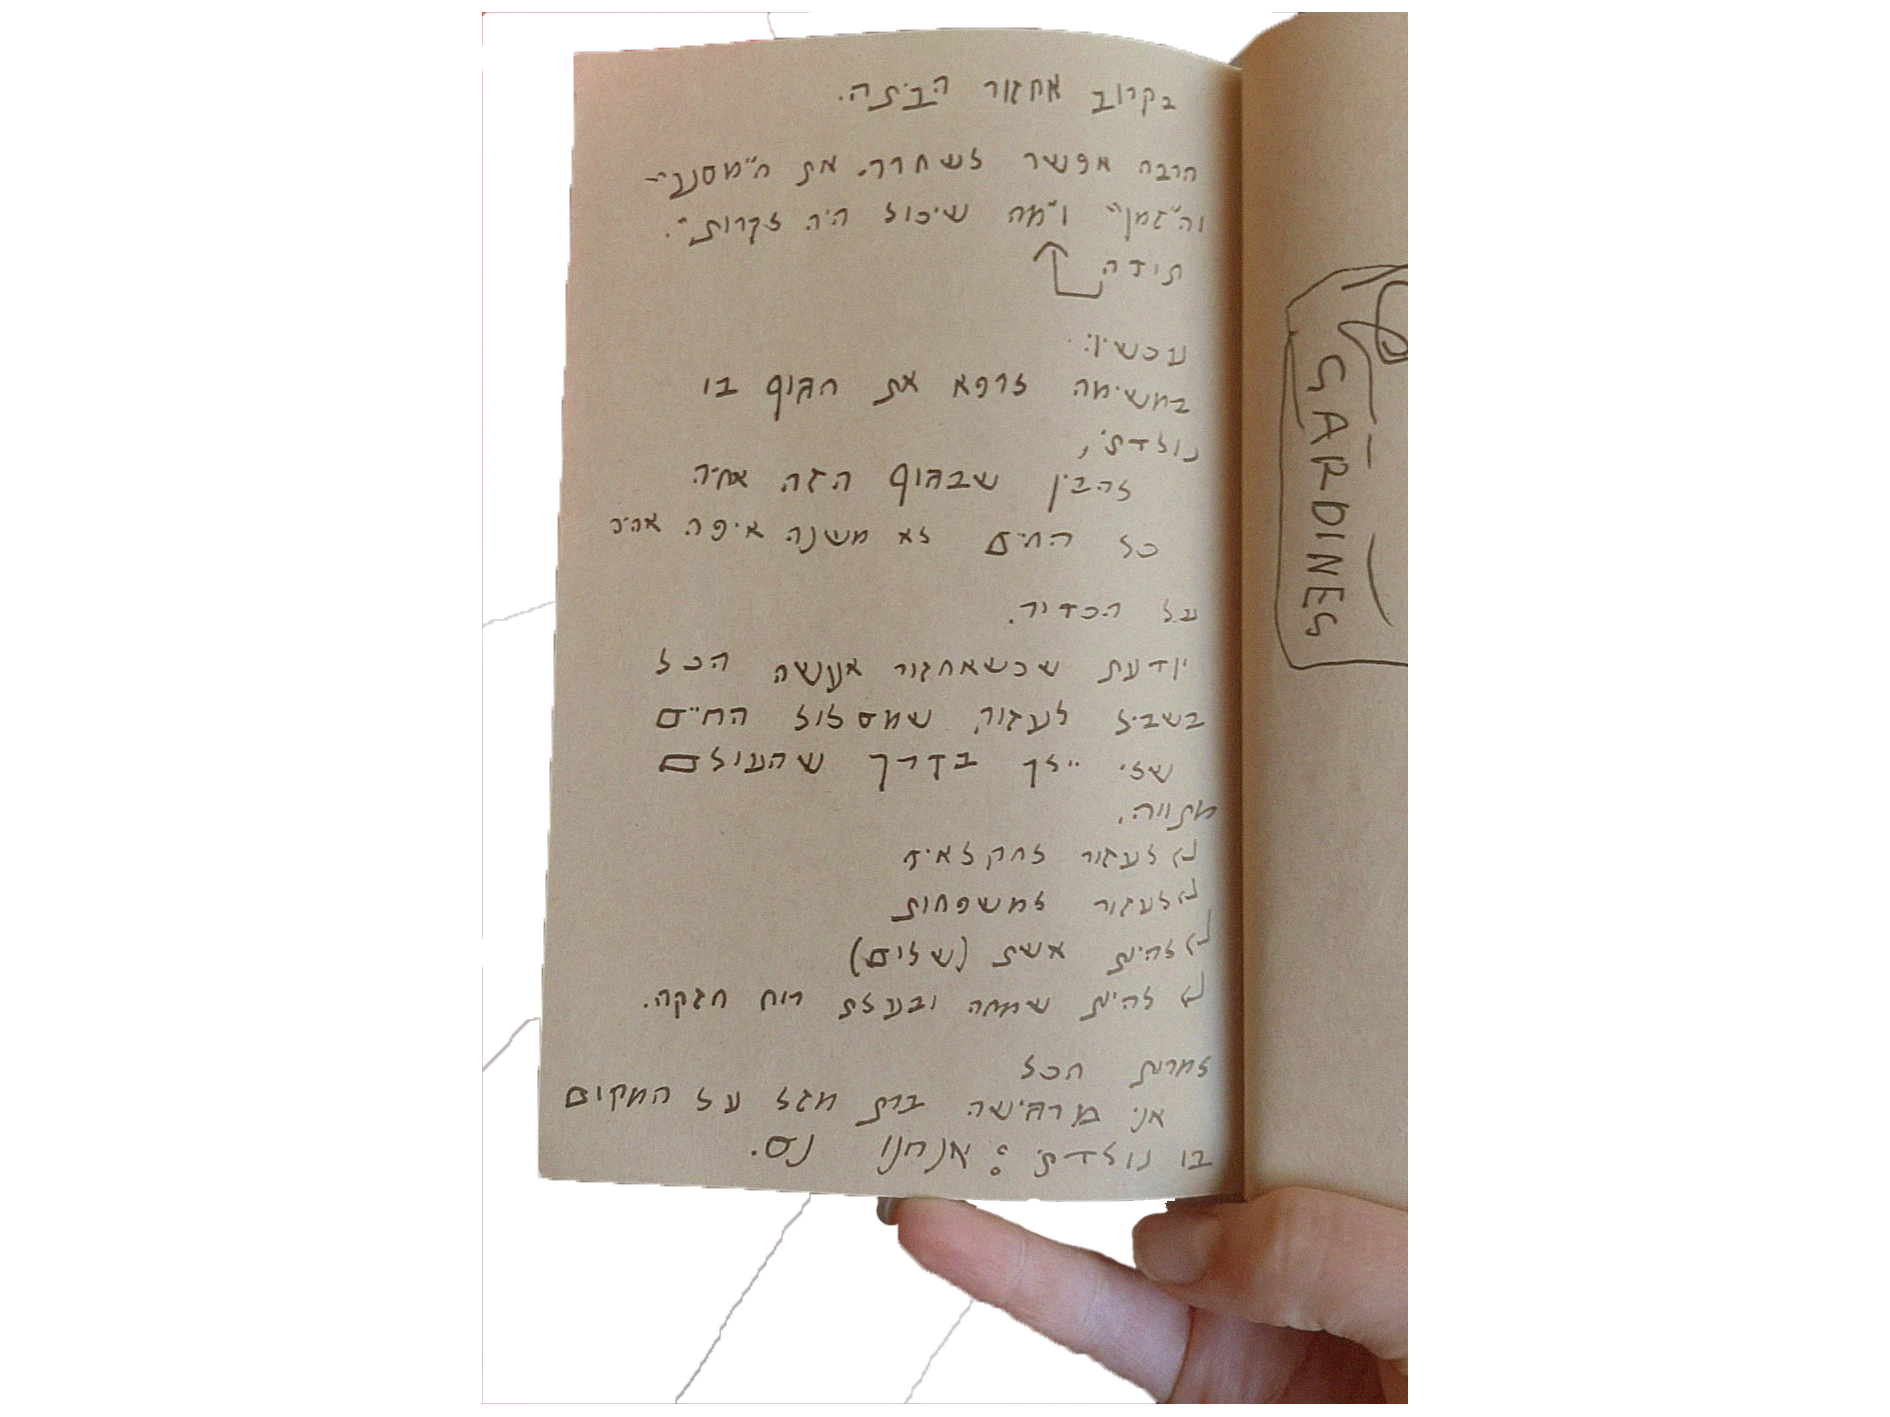 בקרוב אחזור הביתה.
הרבה אפשר לשחרר. את ה"מסננ"
וה"זמן" ו"מה שיכול היה לקרות".
תודה
עכשיו:
במשימה לרפא את הגוף בו
נולדתי,
להבין שבגוף הזה אחיה
כל החיים לא משנה איפה אהיה
על הכדור.
יודעת שכשאחזור אעשה הכל
בשביל לעזור, שמסלול החיים
שלי ילך בדרך שהעולם
מתווה.
לעזור לחקלאים
לעזור למשפחות
להיות אשת (שלום)
להיות שמחה ובעלת רוח חזקה.
למרות הכל
אני מרגישה ברת מזל על המקום
בו נולדתי: אנחנו נס.
SARDINES